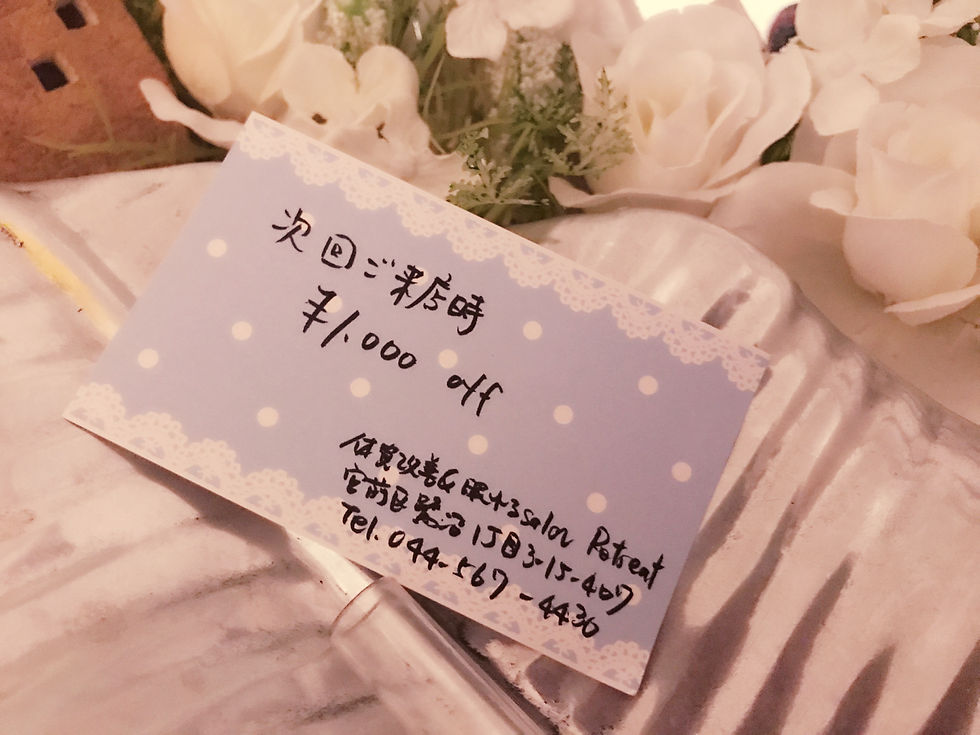 次回ご来店時
¥1.000 off
体質改善&眠れるsalon Retreat
宮前区鷺沼1丁目3-15-407
Tel. 044-567-4430